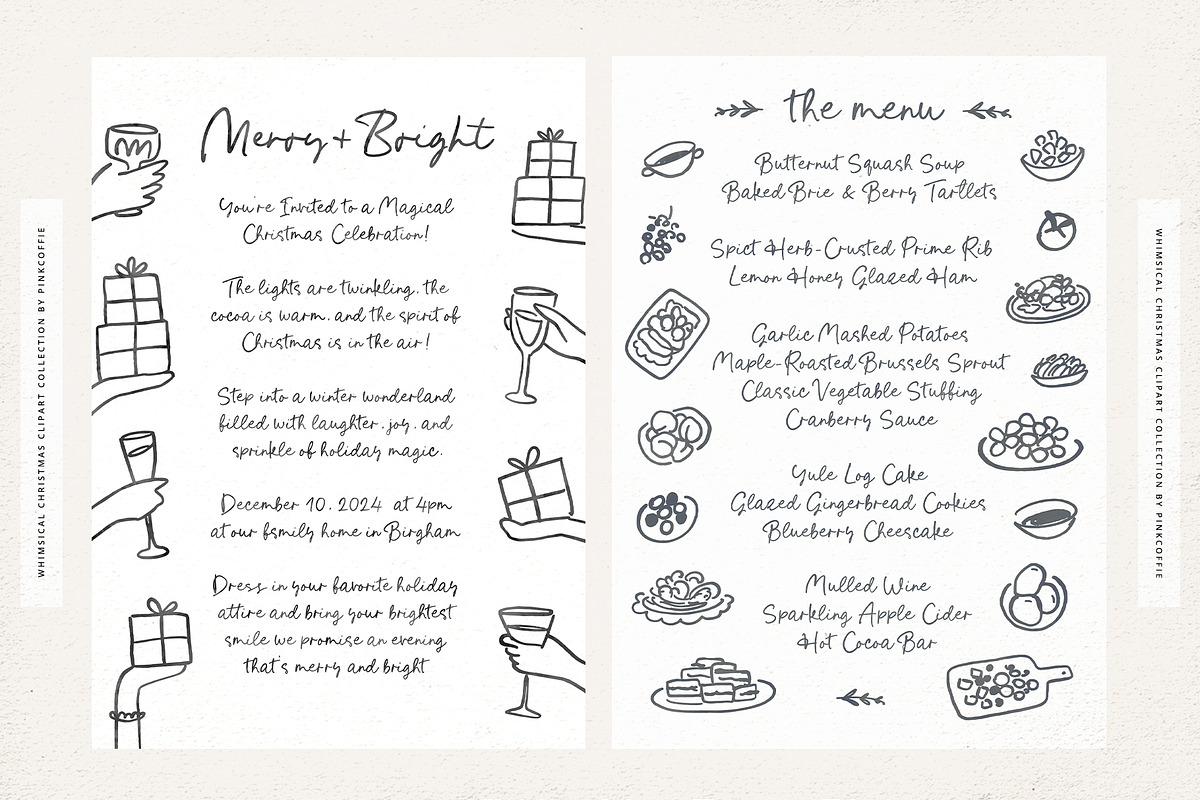 WHIMSICAL CHRISTMAS CLIPART COLLECTION BY PINKCOFFIE
Merry + Bright
You're Invited to a Magical
Christmas Celebration!
The lights are twinkling, the
cocoa is warm, and the spirit of
Christmas is in the air!
Step into a winter wonderland
filled with laughter, joy, and
sprinkle of holiday magic.
December 10, 2024 at 4pm
at our fsmily home in Birgham
Dress in your favorite holiday
attire and bring your brightest
smile we promise an evening
that's merry and bright
the menu
Butternut Squash Soup
Baked Brie & Berry Tartlets
Spict Herb-Crusted Prime Rib
Lemon Honey Glazed Ham
Garlic Mashed Potatoes
Maple-Roasted Brussels Sprout
Classic Vegetable Stuffing
Cranberry Sauce
Yule Log Cake
Glazed Gingerbread Cookies
Blueberry Cheescake
Mulled Wine
Sparkling Apple Cider
Hot Cocoa Bar
WHIMSICAL CHRISTMAS CLIPART COLLECTION BY PINKCOFFIE